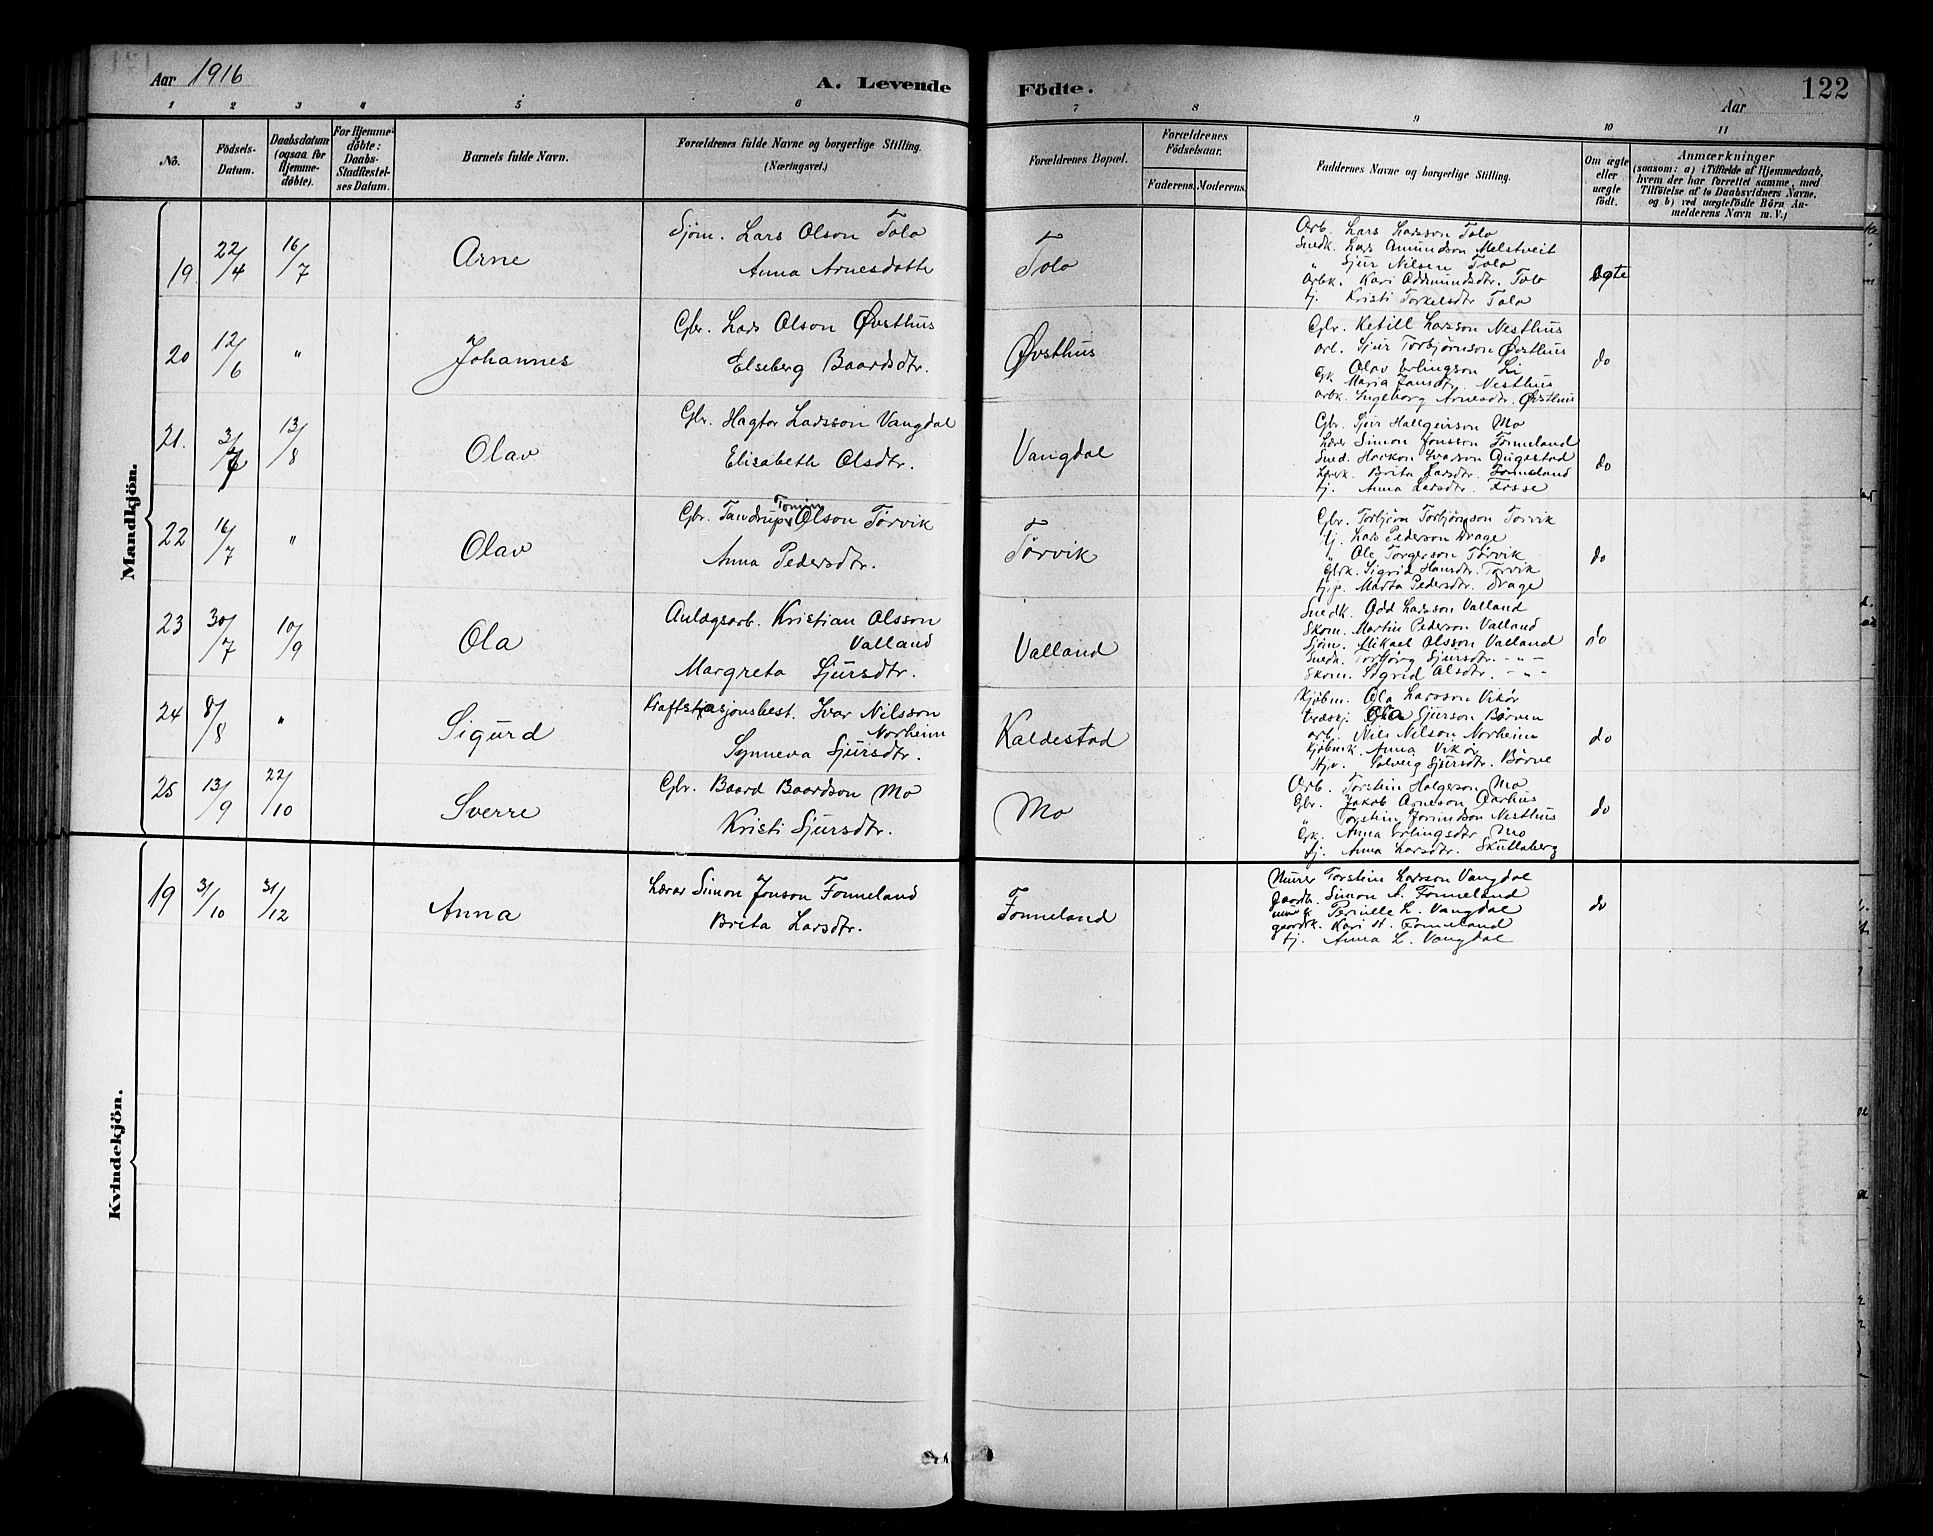 Aar 1916
A. Levende Födte.
Aar
122
1 2 3 4 5 6 7 8 9 10 11
No.
Födsels-Datum.
Daabsdatum (ogsaa for Hjemme-döbte).
For Hjemme-döbte: Daabs-Stadfæstel-ses Datum.
Barnets fulde Navn.
Forældrenes fulde Navne og borgerlige Stilling.
(Næringsvei.)
Forældrenes Bopæl.
Forældrenes Födselsaar.
Faderens. Moderens.
Faddernes Navne og borgerlige Stilling.
Om ægte eller uægte födt.
Anmærkninger
(saasom: a) i Tilfælde af Hjemmedaab, hvem der har forrettet samme, med Tilföielse af to Daabsvidners Navne, og b) ved uægtefödte Börn An-melderens Navn m. V.)
Mandkjön.
19 22/4 16/7 Arne
Sjøm. Lars Olson Tolo
Anna Arnesdotte
Tolo
Arb. Lars Larsson Tolo
Snedk. Lars Amundson Melstveit
" Sjur Nilsen Tolo
Arbk. Kari Oddmundsdtr. Tolo
tj. Kristi Torkelsdtr Tolo
Ægte
20 12/6 " Johannes
Gbr. Lars Olson Øvsthus
Elseberg Baardsdtr.
Øvsthus
Gbr. Ketill Larsson Nesthus
Sjur Torbjørnson Øvsthus
Olav Erlingson Li
Gk. Maria Jansdtr. Nesthus
Arbk. Ingeborg Arnesdtr. Øvsthus
do
21. 3/7 13/8 Olav
Gbr. Hagtor Ladsson Vangdal
Elisabeth Olsdtr.
Vangdal
Gbr. Sjur Hallgeirson Mo
Lærer Simon Jonsson Fonneland
Sned. Haakon Ivarson Augestad
Lærk. Brita Larsdtr. Fonneland
tj. Anna Larsdtr. Fosse
do
22 16/7 " Olav
Gbr. Tandrup Olson Tørvik
Anna Pedersdtr.
Tørvik
Gbr. Torbjørn Torbjørnson Torvik
tj. Lars Pederson Drage
" Ole Torgerson Tørvik
Gbrk. Sigrid Hansdtr. Torvik
tjp. Marta Pedersdtr. Drage
do
23 30/7 10/9 Ola
Anlægsarb. Kristian Olsson
Valland
Margreta Sjursdtr.
Valland
Snedk. Odd Larsson Valland
Skom. Martin Pederson Valland
Sjøm. Mikael Olsson Valland
Snedk. Torbjørg Sjursdtr. - " -
Skom. Sigrid Olsdtr. - " -
do
24 8/8 " Sigurd
Kraftstasjonsbest. Ivar Nilsson
Norheim
Synneva Sjursdtr.
Kaldestad
Kjøbm. Ola Larsson Vikør
Ola Sjurson Børven
arb. Nils Nilson Norheim
Kjøbmk. Anna Vikør
Solveig Sjursdtr. Børve
do
25 13/9 22/10 Sverre
Gbr. Baard Baardson Mo
Kristi Sjursdtr.
Mo
Arb. Torstein Holgerson Mo
Gbr. Jakob Arneson Aarhus
" Torstein Nesthus
Gk. Anna Erlingsdtr Mo
tj. Anna Larsdtr. Skutlaberg
do
Kvindekjön.
19 3/10 31/12 Anna
Lærer Simon Jonson Fonneland
Brita Larsdtr.
Fonneland
Murer Torstein Larsson Vangdal
Gaardbr. Simon A. Fonneland
Pernille L. Vangdal
gaardk. Kari H. Fonneland
tj. Anna L. Vangdal
do